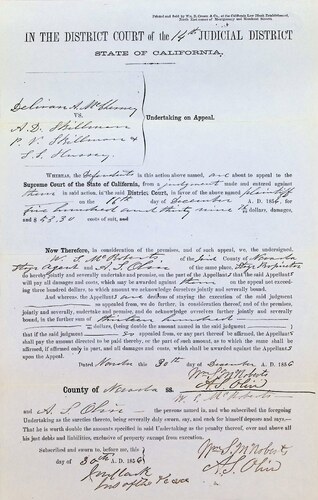 Printed and Sold by Wm. B. Cooke & Co., at the California Law Blank Establishment,
North East corner of Montgomery and Merchant Streets.
IN THE DISTRICT COURT of the 14th JUDICIAL DISTRICT
STATE OF CALIFORNIA.
VS.
A. D. Skillman
P. V. Skillman &
Undertaking on Appeal.
WHEREAS, the Defendants in this action above named, are about to appeal to the
Supreme Court of the State of California, from a judgment made and entered against
them in said action, in the said District Court, in favor of the above named plaintiff
on the 16th day of December A. D. 1856, for
Five hundred and thirty nine dollars, damages,
and $ 23.30 costs of suit, and
Now Therefore, in consideration of the premises, and of such appeal, we, the undersigned,
W. S. McRoberts of the said County of Nevada
Stage Agent and A. S. Olin of the same place, Stage Proprietor
do hereby jointly and severally undertake and promise, on the part of the Appellants that the said Appellants
will pay all damages and costs, which may be awarded against them on the appeal not exceed-
ing three hundred dollars, to which amount we acknowledge ourselves jointly and severally bound.
And whereas the Appellants are desirous of staying the execution of the said judgment
so appealed from, we do further, in consideration thereof, and of the premises,
jointly and severally, undertake and promise, and do acknowledge ourselves further jointly and severally
bound, in the further sum of hundred
dollars, (being double the amount named in the said judgment )
that if the said judgment so appealed from, or any part thereof be affirmed, the Appellants
shall pay the amount directed to be paid thereby, or the part of such amount, as to which the same shall be
affirmed, if affirmed only in part, and all damages and costs, which shall be awarded against the Appellants
upon the Appeal.
Dated Nevada this 30th day of December A. D. 1856
Wm S. McRoberts
A. S. Olin
County of Nevada ss. W. S. McRoberts
and A. S. Olin the persons named in, and who subscribed the foregoing
Undertaking as the sureties thereto, being severally duly sworn, say, and each for himself deposes and says:—
That he is worth the double amounts specified in said Undertaking as the penalty thereof, over and above all
his just debts and liabilities, exclusive of property exempt from execution.
Subscribed and sworn to before me, this
30th day of A. D. 1856
Wm S. McRoberts
A. S. Olin
Jus of the Peace